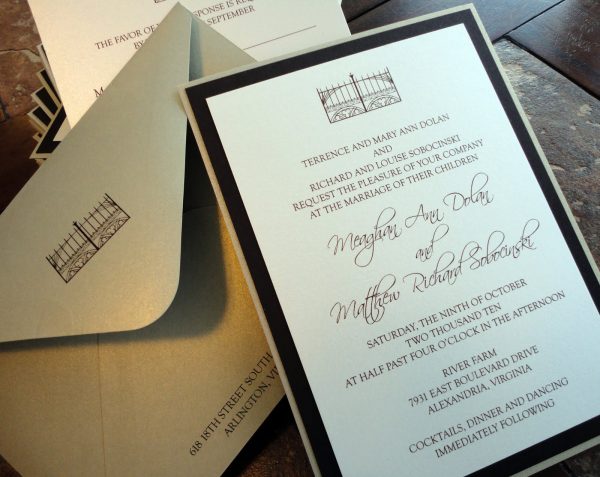 THE FAVOR OF
RESPONSE IS
SEPTEMBER
TERRENCE AND MARY ANN DOLAN
AND
RICHARD AND LOUISE SOBOCINSKI
REQUEST THE PLEASURE OF YOUR COMPANY
AT THE MARRIAGE OF THEIR CHILDREN
Meaghan Ann Dolan
and
Matthew Richard Sobocinski
SATURDAY, THE NINTH OF OCTOBER
TWO THOUSAND TEN
AT HALF PAST FOUR O'CLOCK IN THE AFTERNOON
RIVER FARM
7931 EAST BOULEVARD DRIVE
ALEXANDRIA, VIRGINIA
COCKTAILS, DINNER AND DANCING
IMMEDIATELY FOLLOWING
618 18TH STREET SOUTH
ARLINGTON, VI